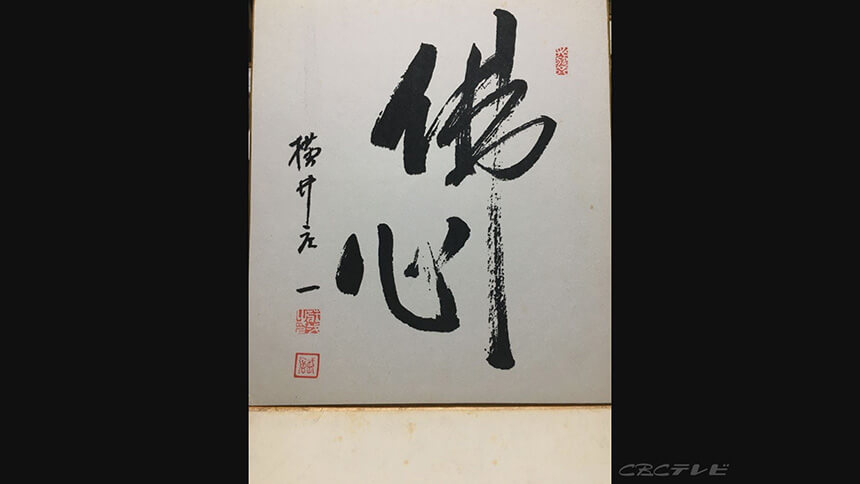 佛心
横井庄一
CBCテレビ